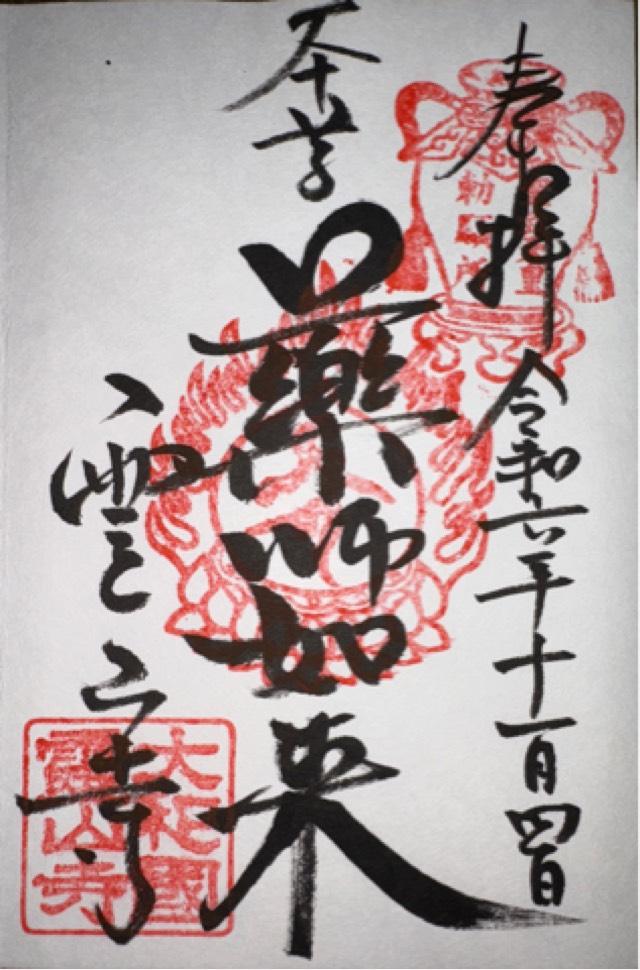 奉拝
令和六年十一月四日
本尊
薬師如来
霊山寺
勅願所
大和國
霊山寺